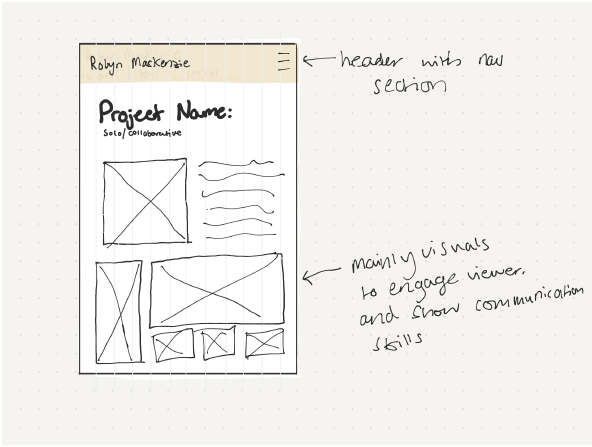 Robyn MacKenzie
header with nav
section
Project Name:
Solo/collaborative
mainly visuals
to engage viewer.
and show communication
skills